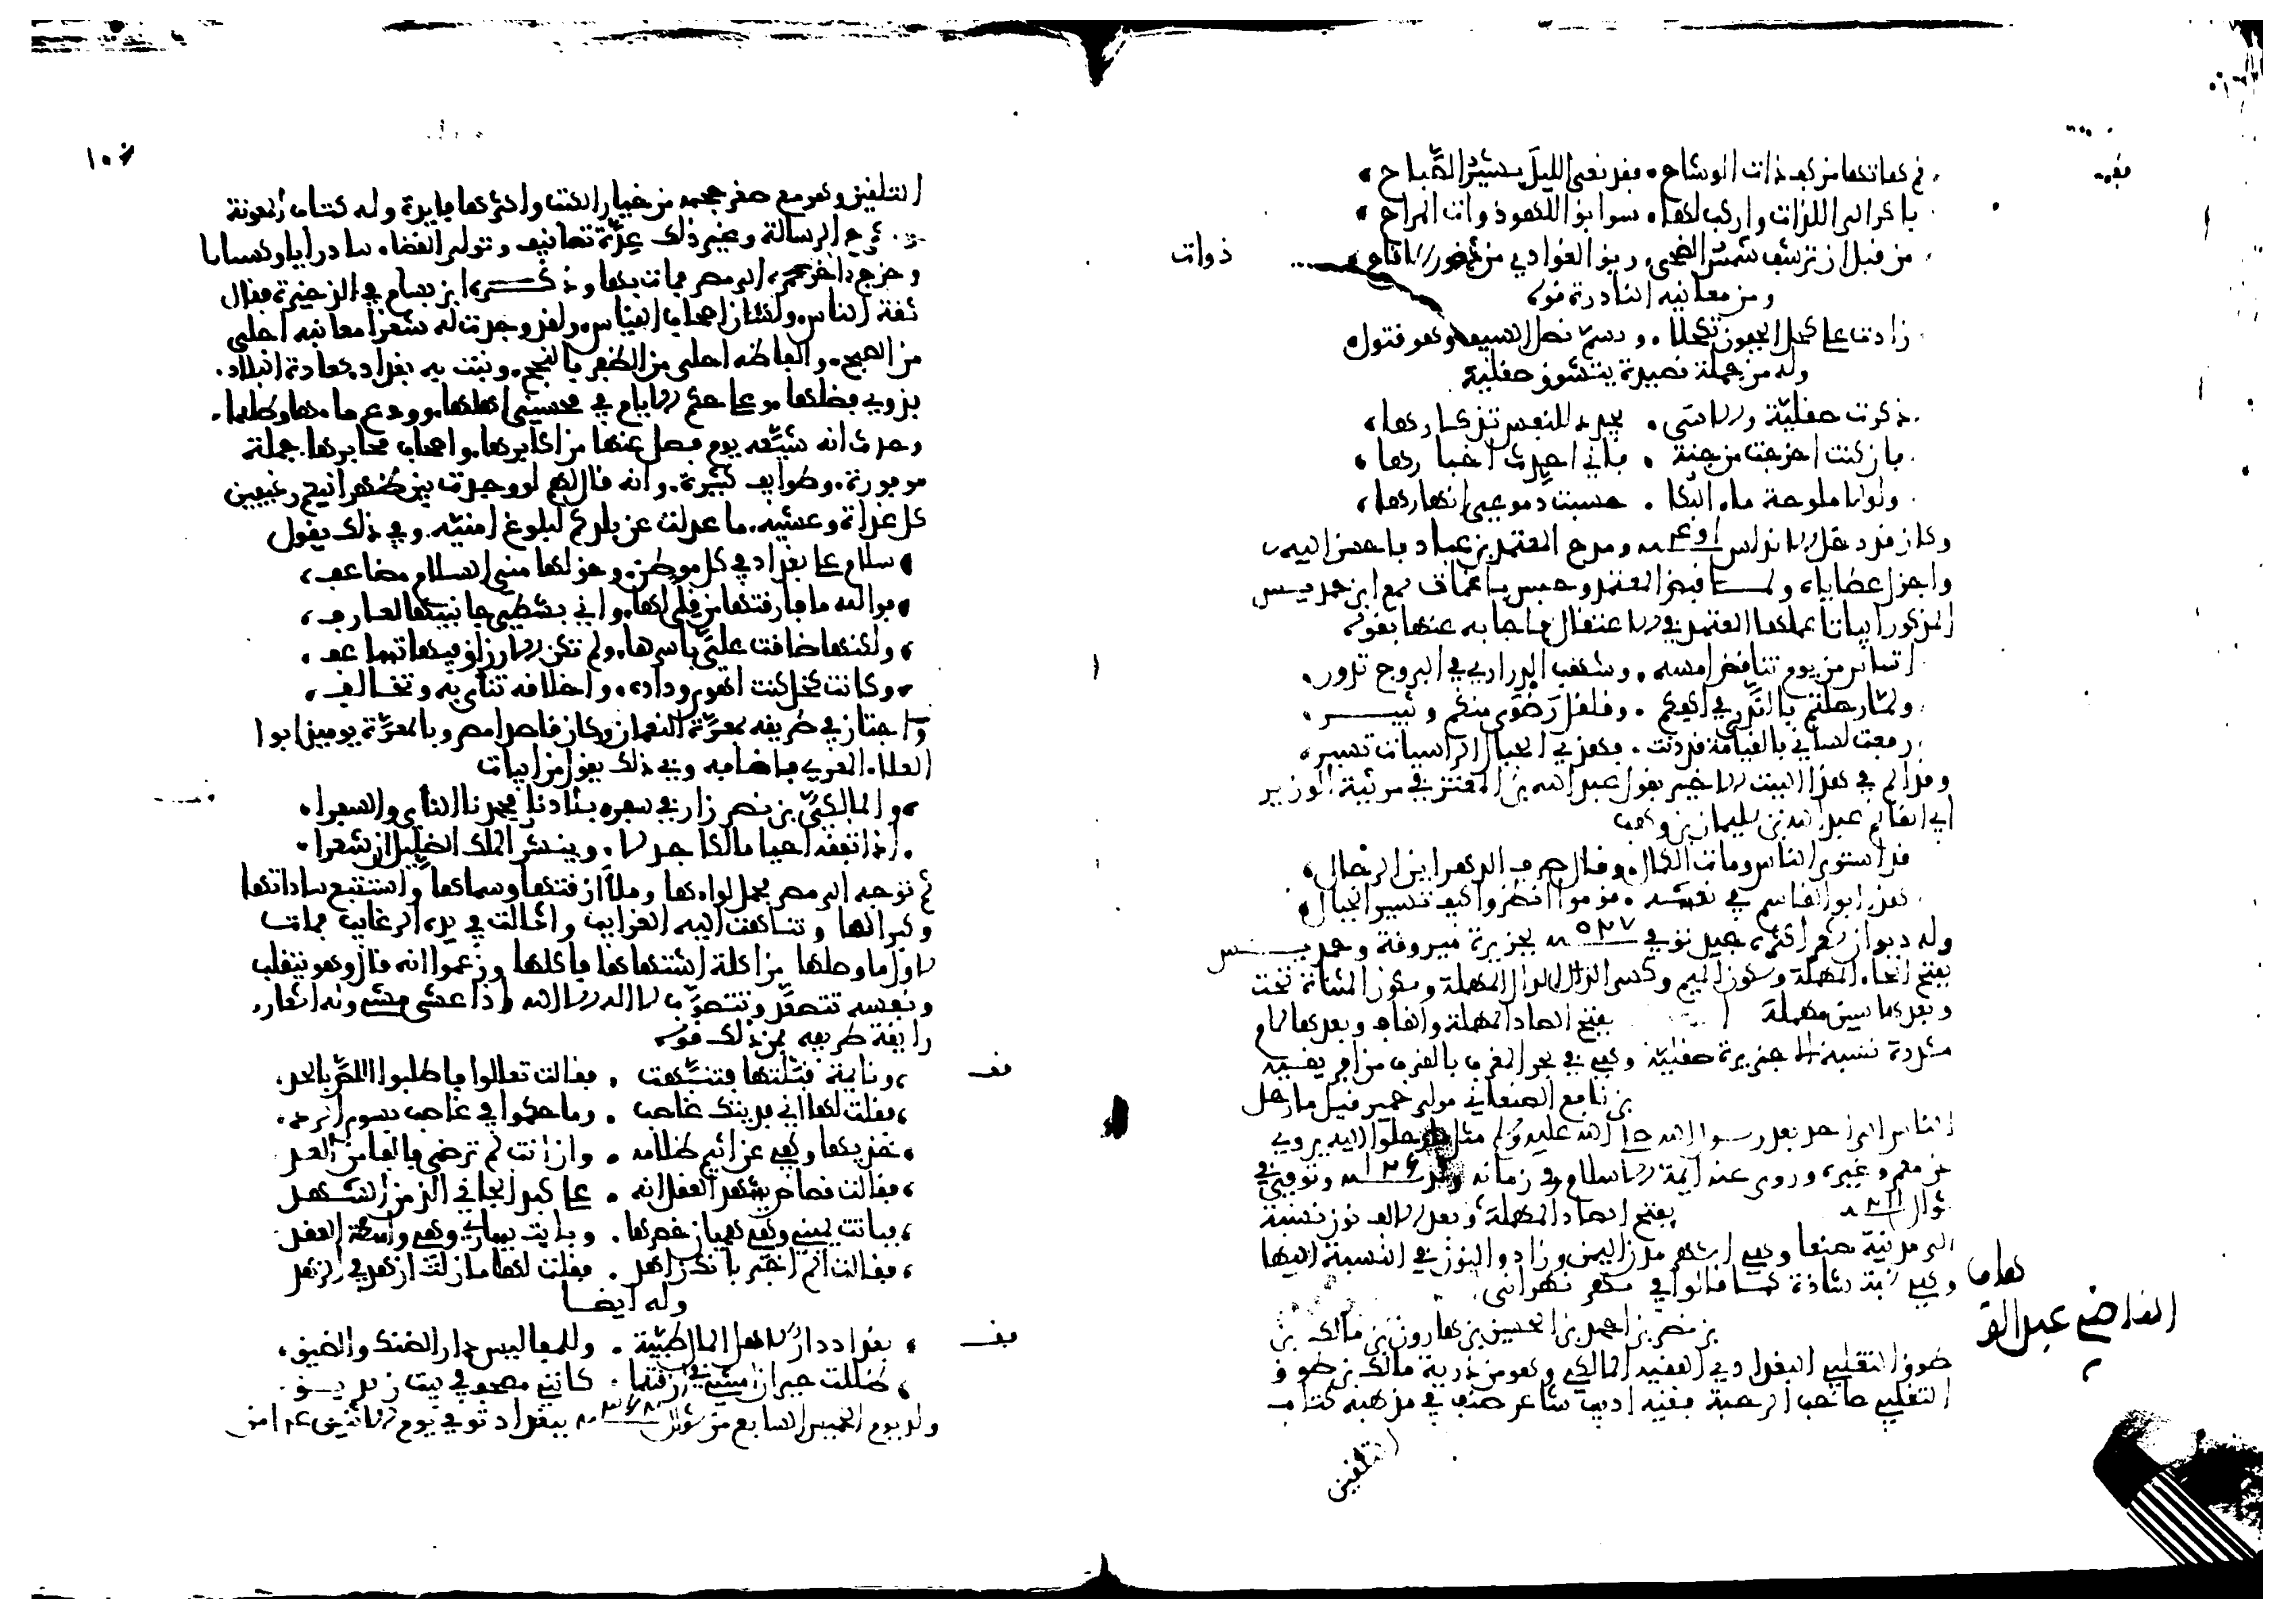 قم هاتها من كف ذات الوشاح . فقد نعى الليل بشير الصباح
باكر إلى اللذات واركب لها . سوابق اللهو ذوات المراح
من قبل ان ترشف شمس الضحى . ريق الغوادي من ثغور الاقاح
ذوات
ومن معانيه النادرة قوله
زادت على كحل الجفون تكحلا . ويسم نصل السيف وهو قتول
وله من جملة قصيدة يتشوق صقلية
ذكرت صقلية والاسى . يجدد للنفس تذكارها
فان كنت اخرجت من جنة . فاني احدث اخبارها
ولولا ملوحة ماء البكا . حسبت دموعي انهارها
وكان قد دخل الاندلس ومدح المعتمد بن عباد فاحسن اليه
واجزل عطاياه ولما قبض المعتمد وحبس باغمات سمع ابن حمديس
المذكور ابياتا عملها المعتمد في الاعتقال فاجابه عنها بقوله
اتياس من يوم تناقض امسه . وشهب الدراري في البروج تدور
ولما رحلتم بالندى في اكفكم . وقلقل رضوى منكم وثبير
رفعت لساني بالقيامة قد دنت . فهذي الجبال الراسيات تسير
وقد الم في هذا البيت الاخير بقول عبد الله بن المعتز في مرثية الوزير
ابي القاسم عبد الله بن سليمان بن وهب
قد استوى الناس ومات الكمال . وقال صرف الدهر اين الرجال
هذا ابو القاسم في نعشه . قوموا انظروا كيف تسير الجبال
وله ديوان شعر اكثره جيد توفي ٥٢٧ بجزيرة ميروقة وحمديس
بفتح الحاء المهملة وسكون الميم وكسر الدال المهملة وسكون المثناة تحت
وبعدها سين مهملة بفتح الصاد المهملة والقاف وبعدها لام
مشددة نسبة الى جزيرة صقلية وهي في بحر المغرب بالقرب من افريقية
بن نافع الصنعاني مولى حمير قيل ما رحل
الناس الى احد بعد رسول الله صلى الله عليه وسلم مثل ما رحلوا اليه يروي
عن معمر وغيره وروى عنه ايمة الاسلام في زمانه ولد وتوفي في
شوال ٢١١ بفتح الصاد المهملة وبعد الالف نون نسبة
الى مدينة صنعا وهي اشهر مدن اليمن وزادوا النون في النسبة اليها
وهي نسبة شاذة كما قالوا في بهرا بهراني
القاضي عبد الو
هاب
بن نصر بن احمد بن الحسين بن هارون بن مالك بن
طوق التغلبي البغدادي الفقيه المالكي وهو من ذرية مالك بن طوق
التغلبي صاحب الرحبة فقيه اديب شاعر صنف في مذهبه كتاب
التلقين
التلقين وهو مع صغر حجمه من خيار الكتب واكثرها فايدة وله كتاب المعونة
وشرح الرسالة وغير ذلك عدة تصانيف وتولى القضاء ببادرايا وباكسايا
وخرج في اخر عمره الى مصر فمات بها وذكره ابن بسام في الذخيرة فقال
ثقة الناس ولسان اصحاب القياس ولقد وجدت له شعرا معانيه اجلى
من الصبح . والفاظه احلى من الظفر بالنجح . ونبت به بغداد كعادة البلاد
بذوي فضلها وعلى حكم الايام في محسني اهلها . وودع ماءها وظلها
وحدث انه شيعه يوم فصل عنها من اكابرها واصحاب محابرها جملة
موفورة . وطوايف كثيرة . وانه قال لهم لو وجدت بين ظهرانيكم رغيفين
كل غداة وعشية . ما عدلت عن بلدكم لبلوغ امنية وفي ذلك يقول
سلام على بغداد في كل موطن . وحق لها مني السلام مضاعف
فوالله ما فارقتها من قلى لها . واني بشطي جانبيها لعارف
ولكنها ضاقت علي باسرها . ولم تكن الارزاق فيها تساعف
وكانت كخل كنت اهوى وداده . واخلاقه تناى به وتخالف
واجتاز في طريقه لمعرة النعمان وكان قاصدا مصر وبالمعرة يومئذ ابوا
العلاء المعري فاضافه وفي ذلك يقول من ابيات
والمالكي بن نصر زار في سفره بلادنا فحمدنا الناي والسفرا
اذا تفقه احيا مالكا جدلا . وينشر الملك الضليل ان شعرا
ثم توجه الى مصر فحمل لواءها وملأ ارضها وسماءها واستتبع ساداتها
وكبراءها وتناهت اليه الغرايب وانثالت في يده الرغايب فمات
لاول ما وصلها من اكلة اشتهاها فاكلها وزعموا انه قال وهو يتقلب
ونفسه تتصعد وتتصوب لا اله الا الله اذا عشنا متنا وله اشعار
رايقة طريفة فمن ذلك قوله
ونايمة قبلتها فتنبهت . فقالت تعالوا فاطلبوا اللص بالحد
فقلت لها اني فديتك غاصب . وما حكموا في غاصب بسوى الرد
خذيها وكفي عن اثيم ظلامة . وان انت لم ترضي فالفا من العد
فقالت قصاص يشهد العقل انه . على كبد الجاني الذ من الشهد
فباتت يميني وهي هميان خصرها . وباتت يساري وهي واسطة العقد
فقالت الم اخبر بانك زاهد . فقلت لها ما زلت ازهد في الزهد
وله ايضا
بغداد دار لاهل المال طيبة . وللمفاليس دار الضنك والضيق
ظللت حيران امشي في ازقتها . كانني مصحف في بيت زنديق
ولد يوم الخميس السابع من شوال ببغداد توفي يوم الاثنين